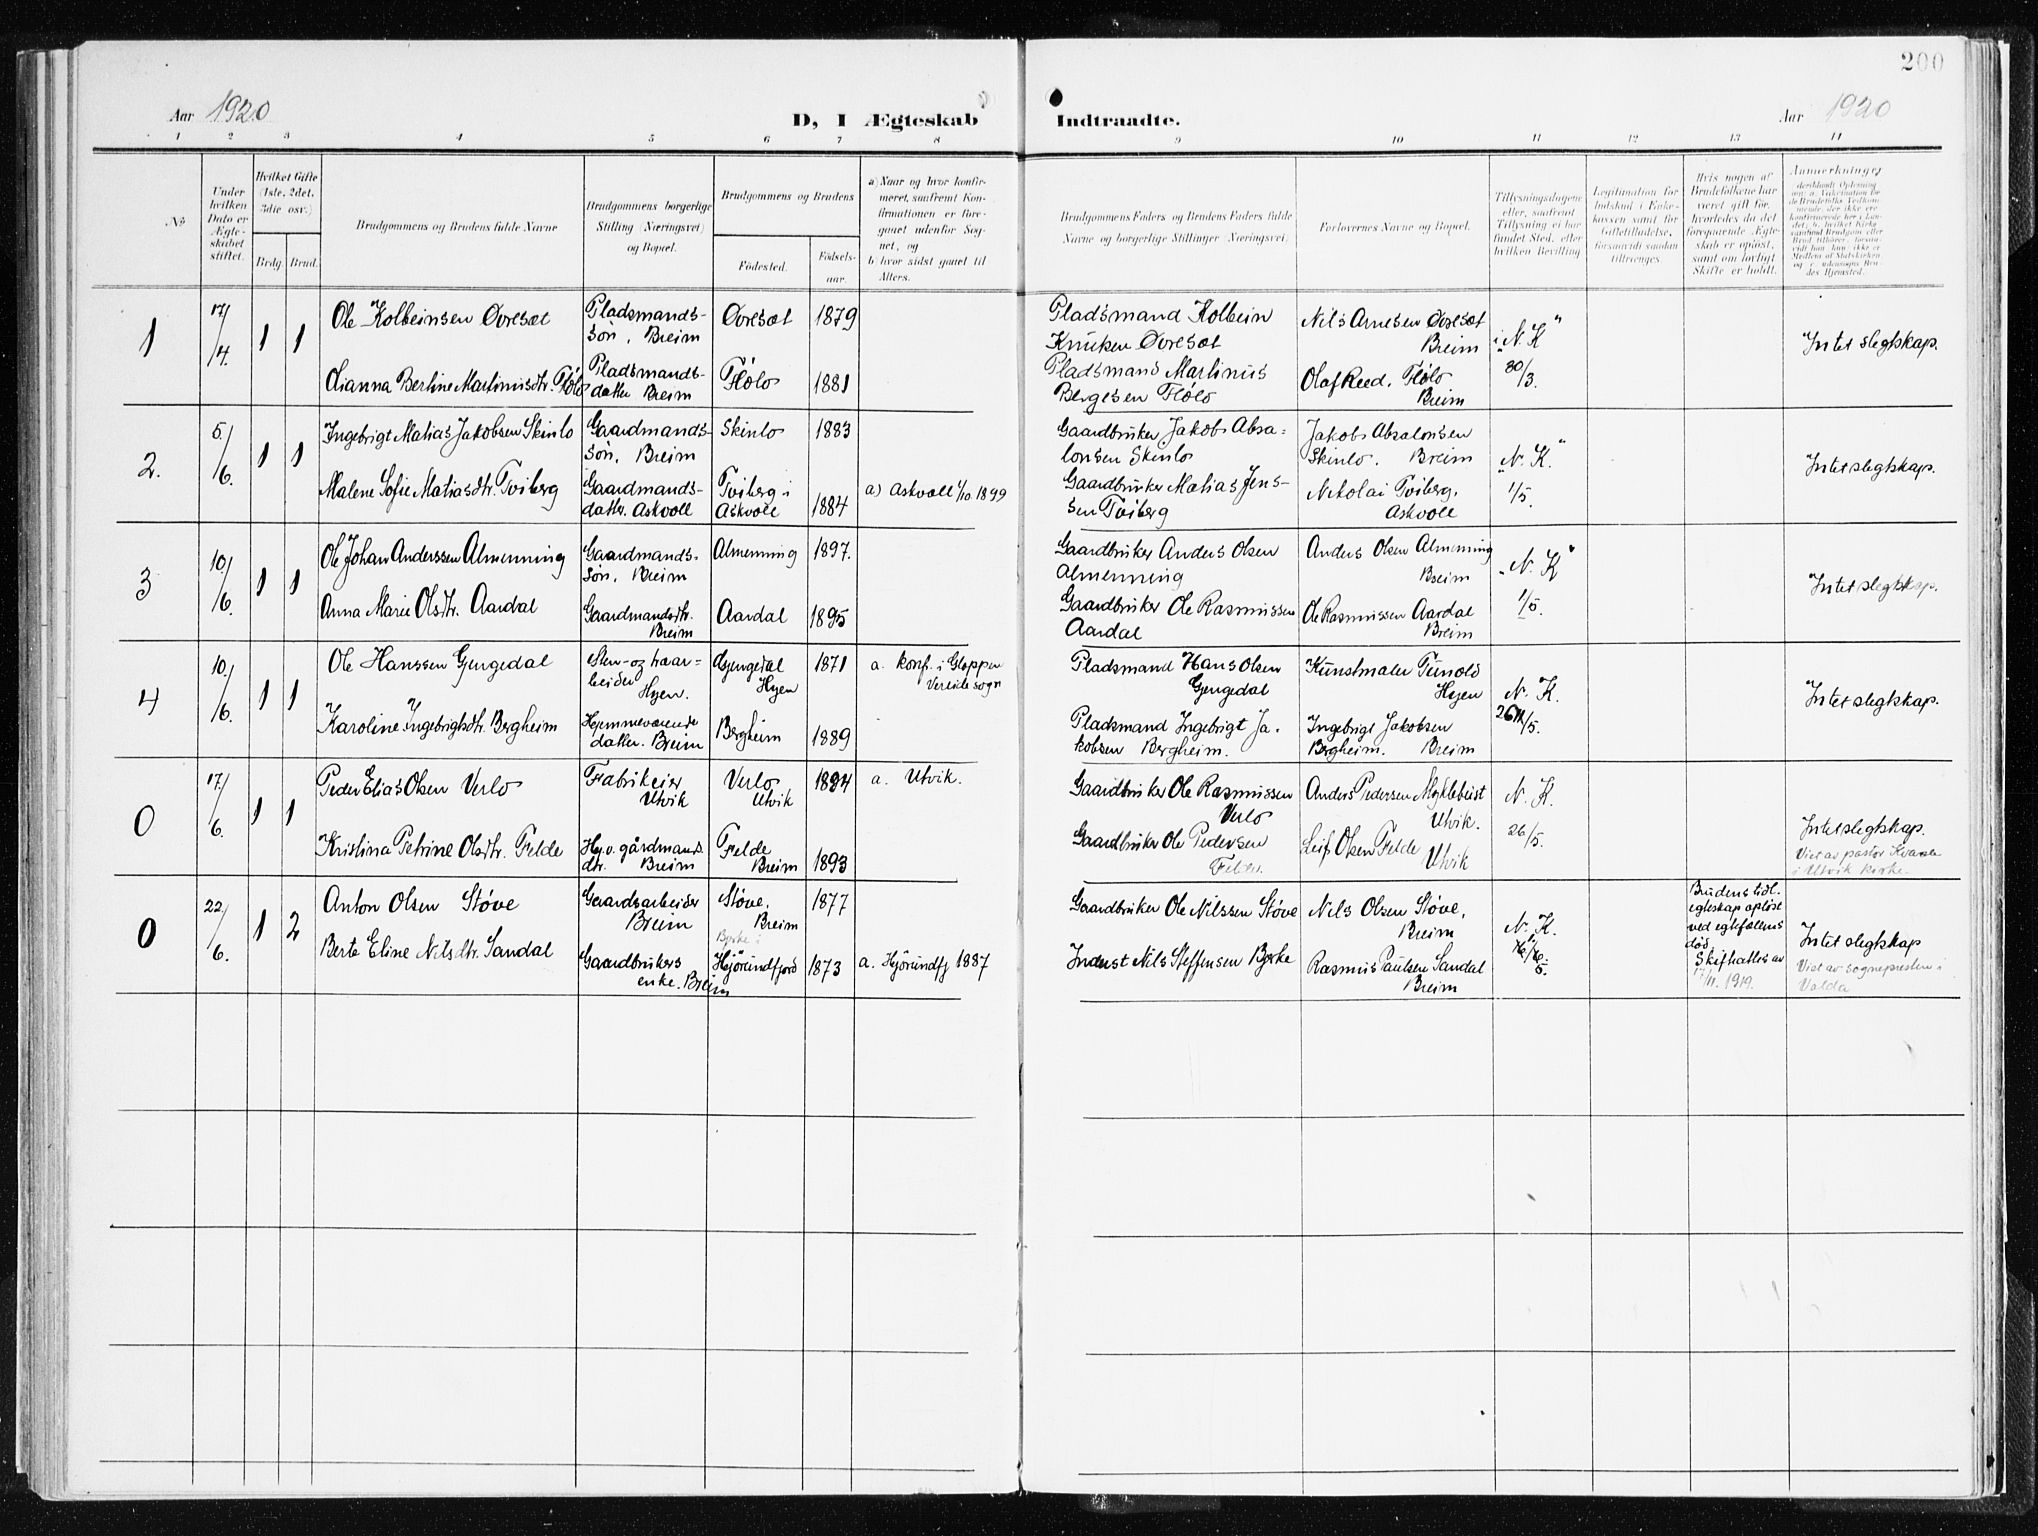 200
Aar 1920
D, I Ægteskab
Indtraadte.
Aar 1920
1 2 3 4 5 6 7 8
9 10 11 12 13 14
№
Under hvilken Dato er Ægteskabet stiftet.
Hvilket Gifte (1ste, 2det, 3die osv.)
Brdg. Brud.
Brudgommens og Brudens fulde Navne
Brudgommens borgerlige Stilling (Næringsvei) og Bopæl.
Brudgommens og Brudens
Fødested.
Fødselsaar.
a) Naar og hvor konfirmeret, saafremt Konfirmationen er foregaaet udenfor Sognet, og
b) hvor sidst gaaet til Alters.
Brudgommens Faders og Brudens Faders fulde Navne og borgerlige Stillinger (Næringsvei)
Forlovernes Navne og Bopæl.
Tillysningsdagene eller, saafremt Tillysning ei har fundet Sted, efter hvilken Bevilling
Legitimation for Indskud i Enkekassen samt for Giftetilladelse, forsaavidt saadan tiltrænges.
Hvis nogen af Brudefolkene har været gift før, hvorledes da det foregaaende Ægteskab er opløst, samt om lovligt Skifte er holdt.
Anmerkninger
1
17/4.
1 1
Ole Kolbeinsen Øvresæt
Pladsmandssøn, Breim
Øvresæt
1879
Pladsmand Kolbein
Knutsen Øvresæt
Nils Arnesen Øvresæt
Breim
"N. K"
30/3.
Intet slegtskap.
Lianna Berline Martinusdtr. Flølo
Pladsmandsdatter Breim
FløLo
1881
Pladsmand Martinus
Bergesen Flølo
Olaf Reed, Flølo
Breim
2.
5/6.
1 1
Ingebrigt Matias Jakobsen Skinlo
Gaardmandssøn, Breim
Skinlo
1883
Gaardbruker Jakob Absalonsen Skinlo
Jakob Absalonsen
Skinlo. Breim
"N. K."
1/5.
Intet slegtskap.
Malene Sofie Matiasdtr. Tviberg
Gaardmandsdatter. Askvoll
Tviberg i
Askvoll
1884
a) Askvoll 1/10. 1899
Gaardbruker Matias Jenssen Tviberg
Nikolai Tviberg,
Askvoll
3
10/6.
1 1
Ole Johan Anderssen Almenning
Gaardmandssøn, Breim
Almenning
1897.
Gaardbruker Anders Olsen
Almenning
Anders Olsen Almenning
Breim
"N. K"
1/5.
Intet slegtskap.
Anna Marie Olsdtr. Aardal
Gaardmandsdtr.
Breim
Aardal
1895
Gaardbruker Ole Rasmussen
Aardal
Ole Rasmussen Aardal
Breim
4
10/6.
1 1
Ole Hanssen Gjengedal
Sten- og
Hyen.
Gjengedal
Hyen
1871
a. konf. i Gloppen
Vereide sogn
Pladsmand Hans Olsen
Gjengedal
Kunstmaler Tunold
Hyen
N. K.
Intet slegtskap.
Karoline Ingebrigtsdtr. Bergheim
Hjemmeværende
datter. Breim
Bergheim
1889
Pladsmand Ingebrigt Jakobsen Bergheim.
Ingebrigt Jakobsen
Bergheim. Breim
0
17/6.
1 1
Peder Elias Olsen Verlo
Fabrikeier
Utvik
Verlo
Utvik
1894
a. Utvik.
Gaardbruker Ole Rasmussen
Verlo
Anders Pedersen Myklebust
Utvik.
N. K.
26/5.
Intet slegtskap.
Viet av pastor Kvaale
i Utvik kirke.
Kristina Petrine Olsdtr. Felde
Hjv. gårdmands
dtr. Breim
Felde
Breim
1893
Gaardbruker Ole Pedersen
Felde.
Leif Olsen Felde
Utvik
0
22/6.
1 2
Anton Olsen Støve
Gaardsarbeider
Breim
Støve,
Breim
1877
Gaardbruker Ole Nilssen Støve
Nils Olsen Støve,
Breim
N. K.
Brudens tidl.
egteskap opløst
ved egtefællens
død
Skifte holdt av
17/11. 1919.
Intet slegtskap
Viet av sognepresten i
Volda
Berte Eline Nilsdtr. Sandal
Gaardbrukers
enke. Breim
Bjerke i
Hjørundfjord
1873
a. Hjørundfj 1887
Inderst Nils Steffensen Bjerke
Rasmus Paulsen Sandal
Breim